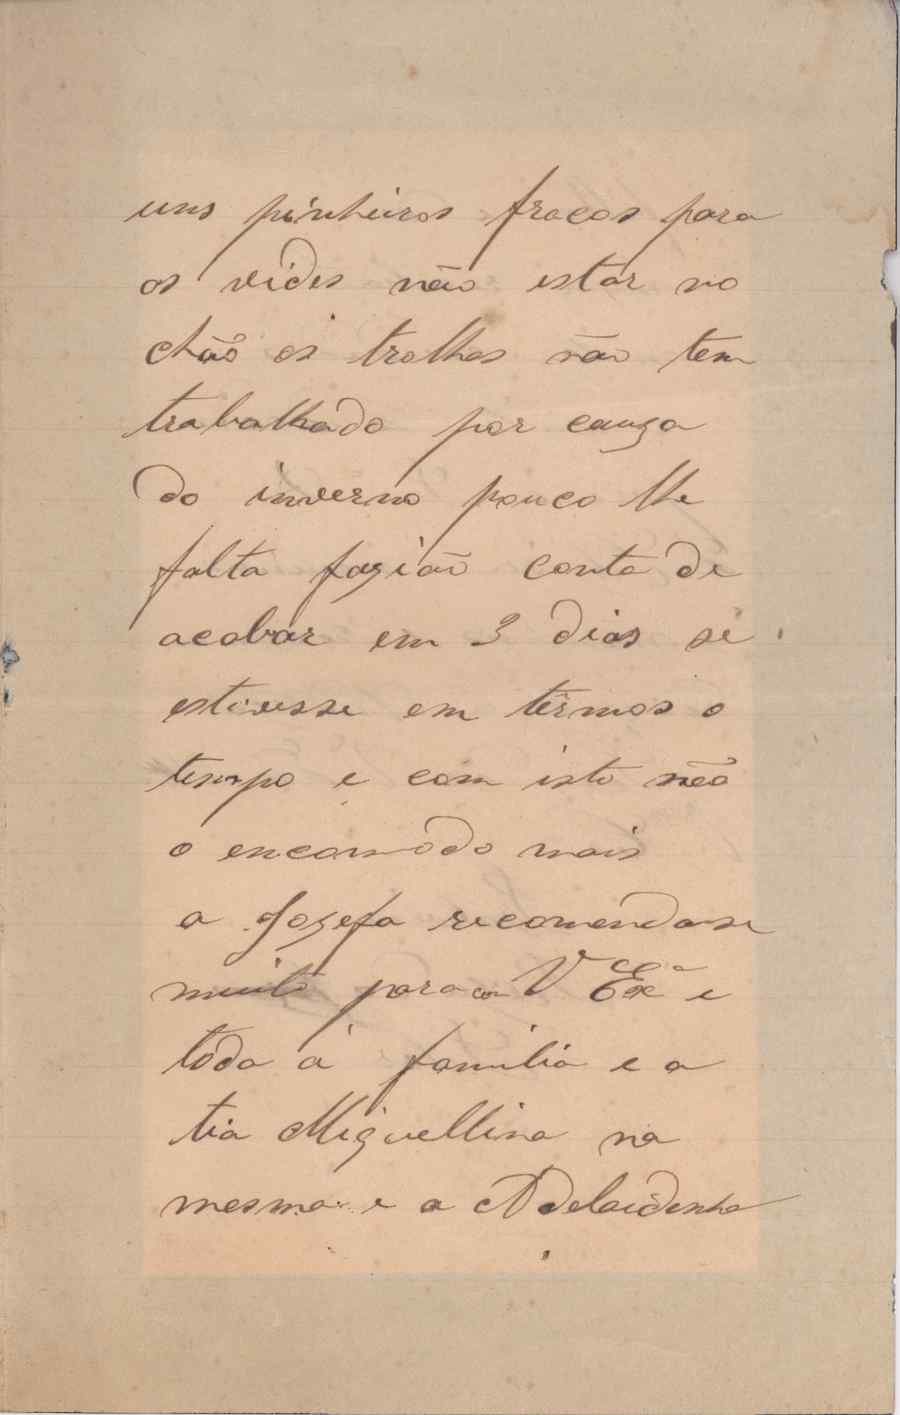 uns pinheiros fracos para
os vides não estar no
chão os trolhas não tem
trabalhado por cauza
do inverno pouco lhe
falta fazião conta de
acabar em 3 dias se
estivesse em termos o
tempo e com isto não
o encomodo mais
a Jozefa recomendasse
muito para com V Exª e
toda á familia e a
tia Miguellina na
mesma e a Adelaidinha